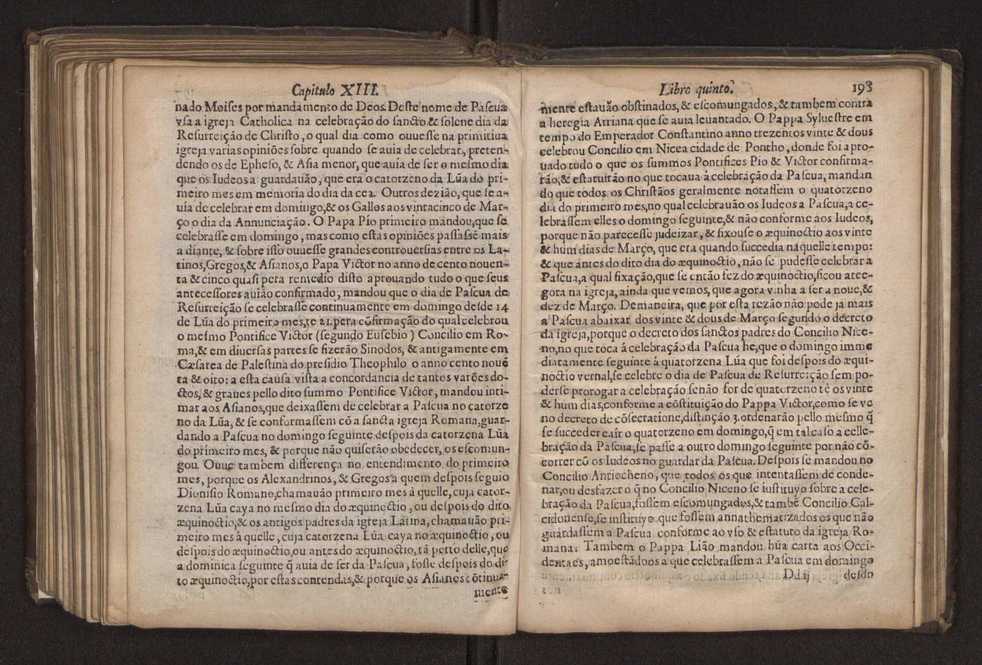 Capitulo XIII.
nado Moises por mandamento de Deos. Deste nome de Pascua
vsa a igreja Catholica na celebração do sancto & solene dia da
Resurreição de Christo, o qual dia como ouuesse na primitiua
igreja varias opiniões sobre quando se auia de celebrar, preten-
dendo os de Epheso, & Asia menor, que auia de ser o mesmo dia
que os Iudeos a guardauão, que era o catorzeno da Lũa do pri-
meiro mes em memoria do dia da cea. Outros dezião, que se a-
uia de celebrar em domingo, & os Gallos aos vintacinco de Mar-
ço o dia da Annunciação. O Papa Pio primeiro mandou, que se
celebrasse em domingo, mas como estas opiniões passassẽ mais
a diante, & sobre isto ouuesse grandes controuersias entre os La-
tinos, Gregos, & Asianos, o Papa Victor no anno de cento nouen-
ta & cinco quasi pera remedio disto aprouando tudo o que seus
antecessores auião confirmado, mandou que o dia de Pascua de
Resurreição se celebrasse continuamente em domingo desde 14
de Lũa do primeiro mes, te 21. pera cõfirmação do qual celebrou
o mesmo Pontifice Victor (segundo Eusebio) Concilio em Ro-
ma, & em diuersas partes se fizerão Sinodos, & antigamente em
Cæsarea de Palestina do presidio Theophilo o anno cento nouẽ
ta & oito: a esta causa vista a concordancia de tantos varões do-
ctos, & graues pello dito summo Pontifice Victor, mandou inti-
mar aos Asianos, que deixassem de celebrar a Pascua no catorze
no da Lũa, & se conformassem cõ a sancta igreja Romana, guar-
dando a Pascua no domingo seguinte despois da catorzena Lũa
do primeiro mes, & porque não quiserão obedecer, os escomun-
gou. Ouue tambem differença no entendimento do primeiro
mes, porque os Alexandrinos, & Gregos a quem despois seguio
Dionisio Romano, chamauão primeiro mes à quelle, cuja cator-
zena Lũa caya no mesmo dia do æquinoctio, ou despois do dito
æquinoctio, & os antigos padres da igreja Latina, chamauão pri-
meiro mes à quelle, cuja catorzena Lũa caya no æquinoctio, ou
despois do æquinoctio, ou antes do æquinoctio, tã perto delle, que
a dominica seguinte q̃ auia de ser da Pascua, fosse despois do di-
to æquinoctio, por estas contendas, & porque os Asianos cõtinua-
mente
Libro quinto. 198
mente estauão obstinados, & escomungados, & tambem contra
a heregia Arriana que se auia leuantado. O Pappa Syluestre em
tempo do Emperador Constantino anno trezentos vinte & dous
celebrou Concilio em Nicea cidade de Pontho, donde foi apro-
uado tudo o que os summos Pontifizes Pio & Victor confirma-
rão, & estatuirão no que tocaua à celebração da Pascua, mandan
do que todos os Christãos geralmente notassem o quatorzeno
dia do primeiro mes, no qual celebrauão os Iudeos a Pascua, a ce-
lebrassem elles o domingo seguinte, & não conforme aos Iudeos,
porque não parecesse judeizar, & fixouse o æquinoctio aos vinte
& hum dias de Março, que era quando succedia naquelle tempo:
& que antes do dito dia do æquinoctio, não se pudesse celebrar a
Pascua, a qual fixação, que se então fez do æquinoctio, ficou atee-
gora na igreja, ainda que vemos, que agora vinha a ser a noue, &
dez de Março. Demaneira, que por esta rezão não pode ja mais
a Pascua abaixar dos vinte & dous de Março segundo o decreto
da igreja, porque o decreto dos sanctos padres do Concilio Nice-
no, no que toca à celebração da Pascua he, que o domingo imme
diatamente seguinte à quatorzena Lũa que foi despois do æqui-
noctio vernal, se celebre o dia de Pascua de Resurreição sem po-
derse prorogar a celebração senão for de quatorzeno tè os vinte
& hum dias, conforme a cõstituição do Pappa Victor, como se ve
no decreto de cõsecratione, distinção 3. ordenarão pello mesmo q̃
se succeder cair o quatorzeno em domingo, q̃ em tal caso a celle-
bração da Pascua, se passe a outro domingo seguinte por não cõ-
correr cũ os Iudeos no guardar da Pascua. Despois se mandou no
Concilio Antiocheno, que todos os que intentassem de conde-
nar, ou desfazer o q̃ no Concilio Niceno se instituyo sobre a cele-
bração da Pascua, fossem escomungados, & tambẽ Concilio Cal-
cidonense, se instituyo que fossem annathematizados os que não
guardassem a Pascua conforme ao vso & estatuto da igreja Ro-
mana: Tambem o Pappa Lião mandou hũa carta aos Occi-
dentaes, amoestãdoos a que celebrassem a Pascua em domingo
Dd ij desdo